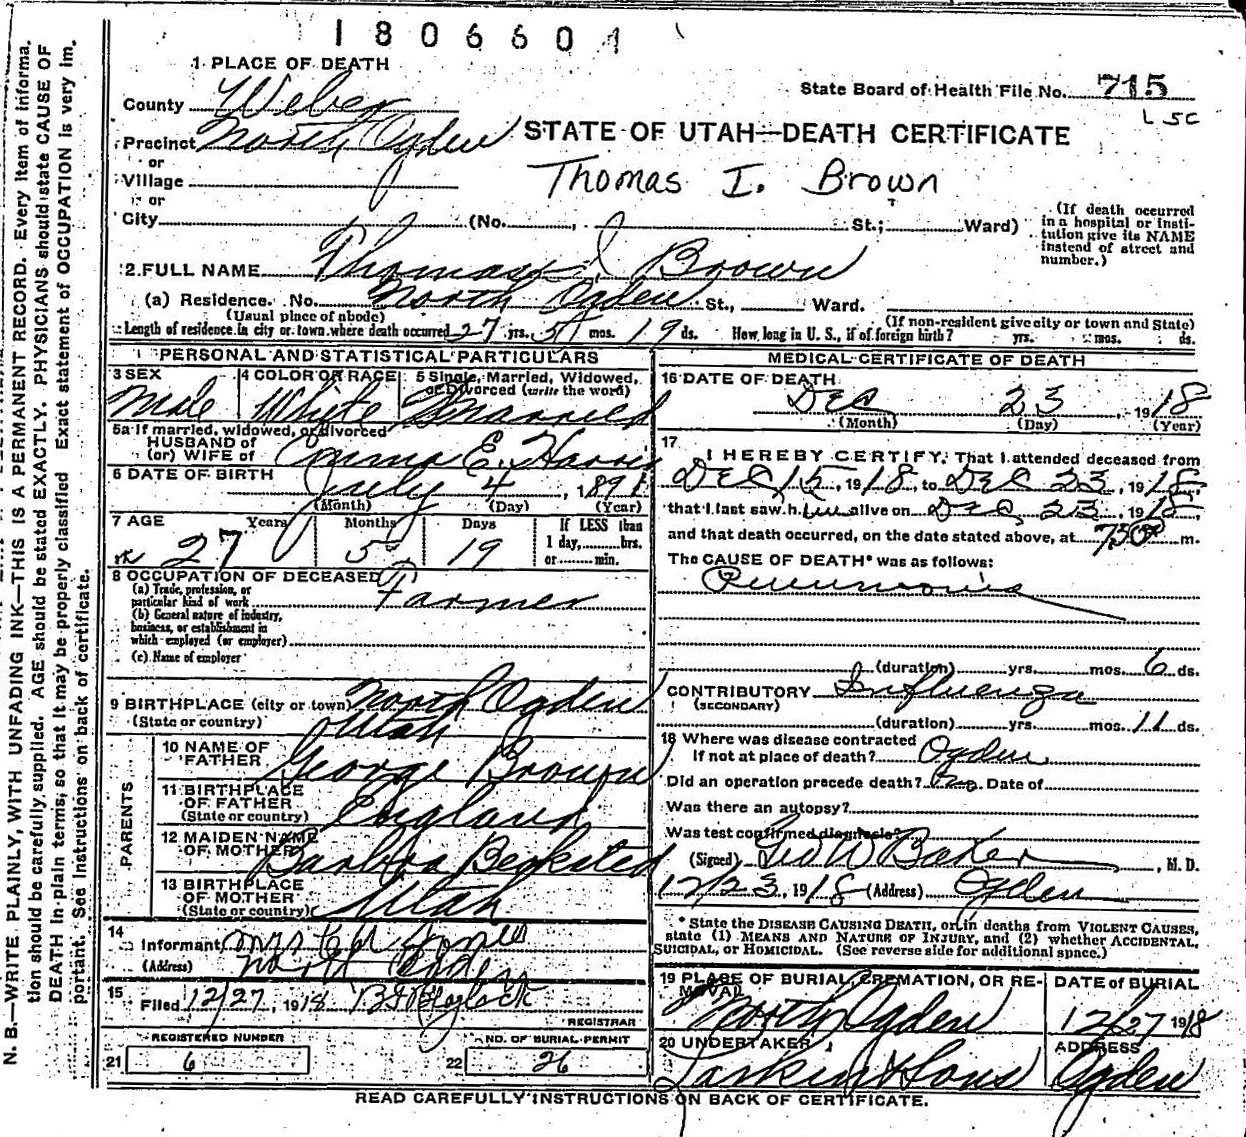 1806601
1 PLACE OF DEATH
State Board of Health File No. 715
County Weber
L 5C
Precinct North Ogden
STATE OF UTAH—DEATH CERTIFICATE
or
Village
Thomas I. Brown
or
City (No. , St.; Ward)
(If death occurred in a hospital or insti-
tution give its NAME instead of street and number.)
2. FULL NAME Thomas I Brown
(a) Residence. No. North Ogden St., Ward.
(Usual place of abode)
(If non-resident give city or town and State)
Length of residence in city or town where death occurred 27 yrs. 5 mos. 19 ds. How long in U. S., if of foreign birth? yrs. mos. ds.
PERSONAL AND STATISTICAL PARTICULARS
3 SEX
Male
4 COLOR OR RACE
White
5 Single, Married, Widowed,
or Divorced (write the word)
Married
5a If married, widowed, or divorced
HUSBAND of
(or) WIFE of Emma E. Harris
6 DATE OF BIRTH
July 4, 1891
(Month) (Day) (Year)
7 AGE Years Months Days
27 5 19
If LESS than
1 day, hrs.
or min.
8 OCCUPATION OF DECEASED
(a) Trade, profession, or
particular kind of work Farmer
(b) General nature of industry,
business, or establishment in
which employed (or employer)
(c) Name of employer
9 BIRTHPLACE (city or town) North Ogden
(State or country) Utah
PARENTS
10 NAME OF
FATHER George Brown
11 BIRTHPLACE
OF FATHER
(State or country) England
12 MAIDEN NAME
OF MOTHER Barbra
13 BIRTHPLACE
OF MOTHER
(State or country) Utah
14
Informant Mrs
(Address) North Ogden
15
Filed 12/27, 1918
REGISTRAR
REGISTERED NUMBER
21 6
NO. OF BURIAL PERMIT
22 26
MEDICAL CERTIFICATE OF DEATH
16 DATE OF DEATH
Dec 23, 1918
(Month) (Day) (Year)
17
I HEREBY CERTIFY, That I attended deceased from
Dec 15, 1918, to Dec 23, 1918,
that I last saw him alive on Dec 23, 1918,
and that death occurred, on the date stated above, at 730 m.
The CAUSE OF DEATH* was as follows:
Pneumonia
(duration) yrs. mos. 6 ds.
CONTRIBUTORY Influenza
(SECONDARY)
(duration) yrs. mos. 11 ds.
18 Where was disease contracted
If not at place of death? Ogden
Did an operation precede death? no Date of
Was there an autopsy?
Was test confirmed diagnosis?
(Signed) Geo W Baker, M. D.
12/23, 1918 (Address) Ogden
* State the DISEASE CAUSING DEATH, or in deaths from VIOLENT CAUSES,
state (1) MEANS AND NATURE OF INJURY, and (2) whether ACCIDENTAL,
SUICIDAL, or HOMICIDAL. (See reverse side for additional space.)
19 PLACE OF BURIAL, CREMATION, OR RE-
MOVAL
North Ogden
DATE of BURIAL
12/27 1918
20 UNDERTAKER
Larkin & Sons
ADDRESS
Ogden
READ CAREFULLY INSTRUCTIONS ON BACK OF CERTIFICATE.
N. B.—WRITE PLAINLY, WITH UNFADING INK—THIS IS A PERMANENT RECORD. Every item of informa-
tion should be carefully supplied. AGE should be stated EXACTLY. PHYSICIANS should state CAUSE OF
DEATH in plain terms, so that it may be properly classified. Exact statement of OCCUPATION is very im-
portant. See instructions on back of certificate.